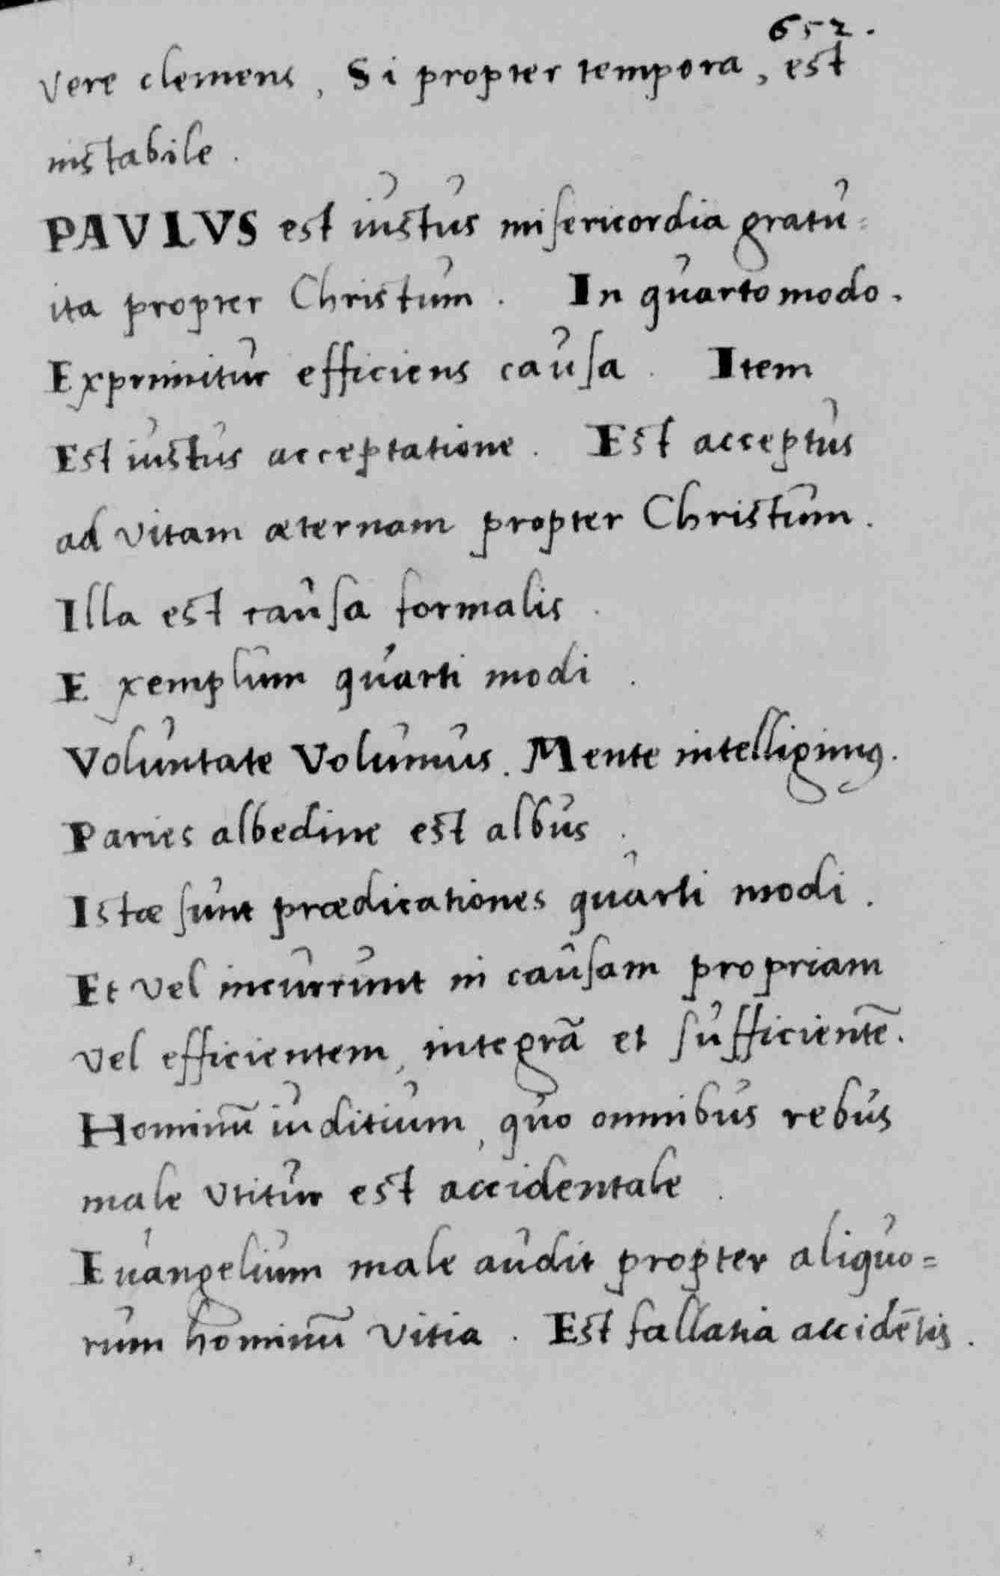 652.
vere clemens, Si propter tempora, est
instabile.
PAVLVS est iustus misericordia gratu=
ita propter Christum. In quarto modo.
Exprimitur efficiens causa. Item
Est iustus acceptatione. Est acceptus
ad vitam æternam propter Christum.
Illa est causa formalis.
Exemplum quarti modi.
Voluntate Volumus. Mente intelligimꝰ.
Paries albedine est albus.
Istæ sunt prædicationes quarti modi.
Et vel incurrunt in causam propriam
vel efficientem, integrā et sufficientē.
Hominū iuditium, quo omnibus rebus
male utitur est accidentale.
Euangelium male audit propter aliquo=
rum hominū vitia. Est fallatia accidētis.